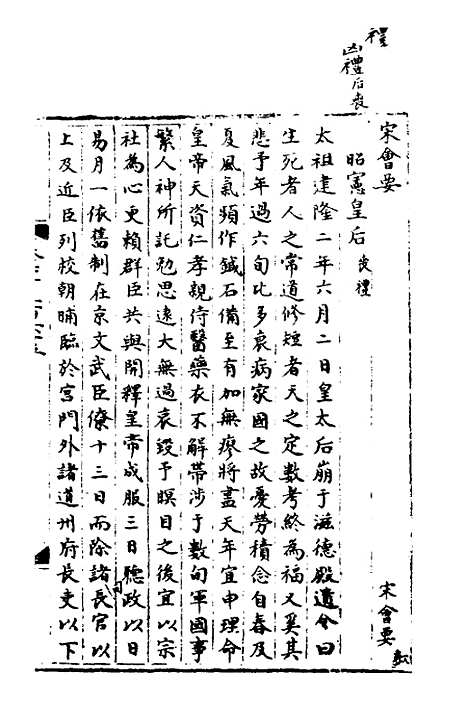 禮
凶禮后喪
宋會要
宋會要
昭憲皇后 喪禮
太祖建隆二年六月二日皇太后崩于滋德殿遺令曰
生死者人之常道修短者天之定數考終為福又奚其
悲予年過六旬比多衰病家國之故憂勞積念自春及
夏風氣頻作鍼石備至有加無瘳將盡天年宜申理命
皇帝天資仁孝親侍醫藥衣不解帶涉于數旬軍國事
繁人神所託勉思遠大無過哀毀予瞑目之後宜以宗
社為心更賴群臣共與開釋皇帝成服三日聽政以日
易月一依舊制在京文武臣僚十三日而除諸長官以
上及近臣列校朝晡臨於宮門外諸道州府長吏以下